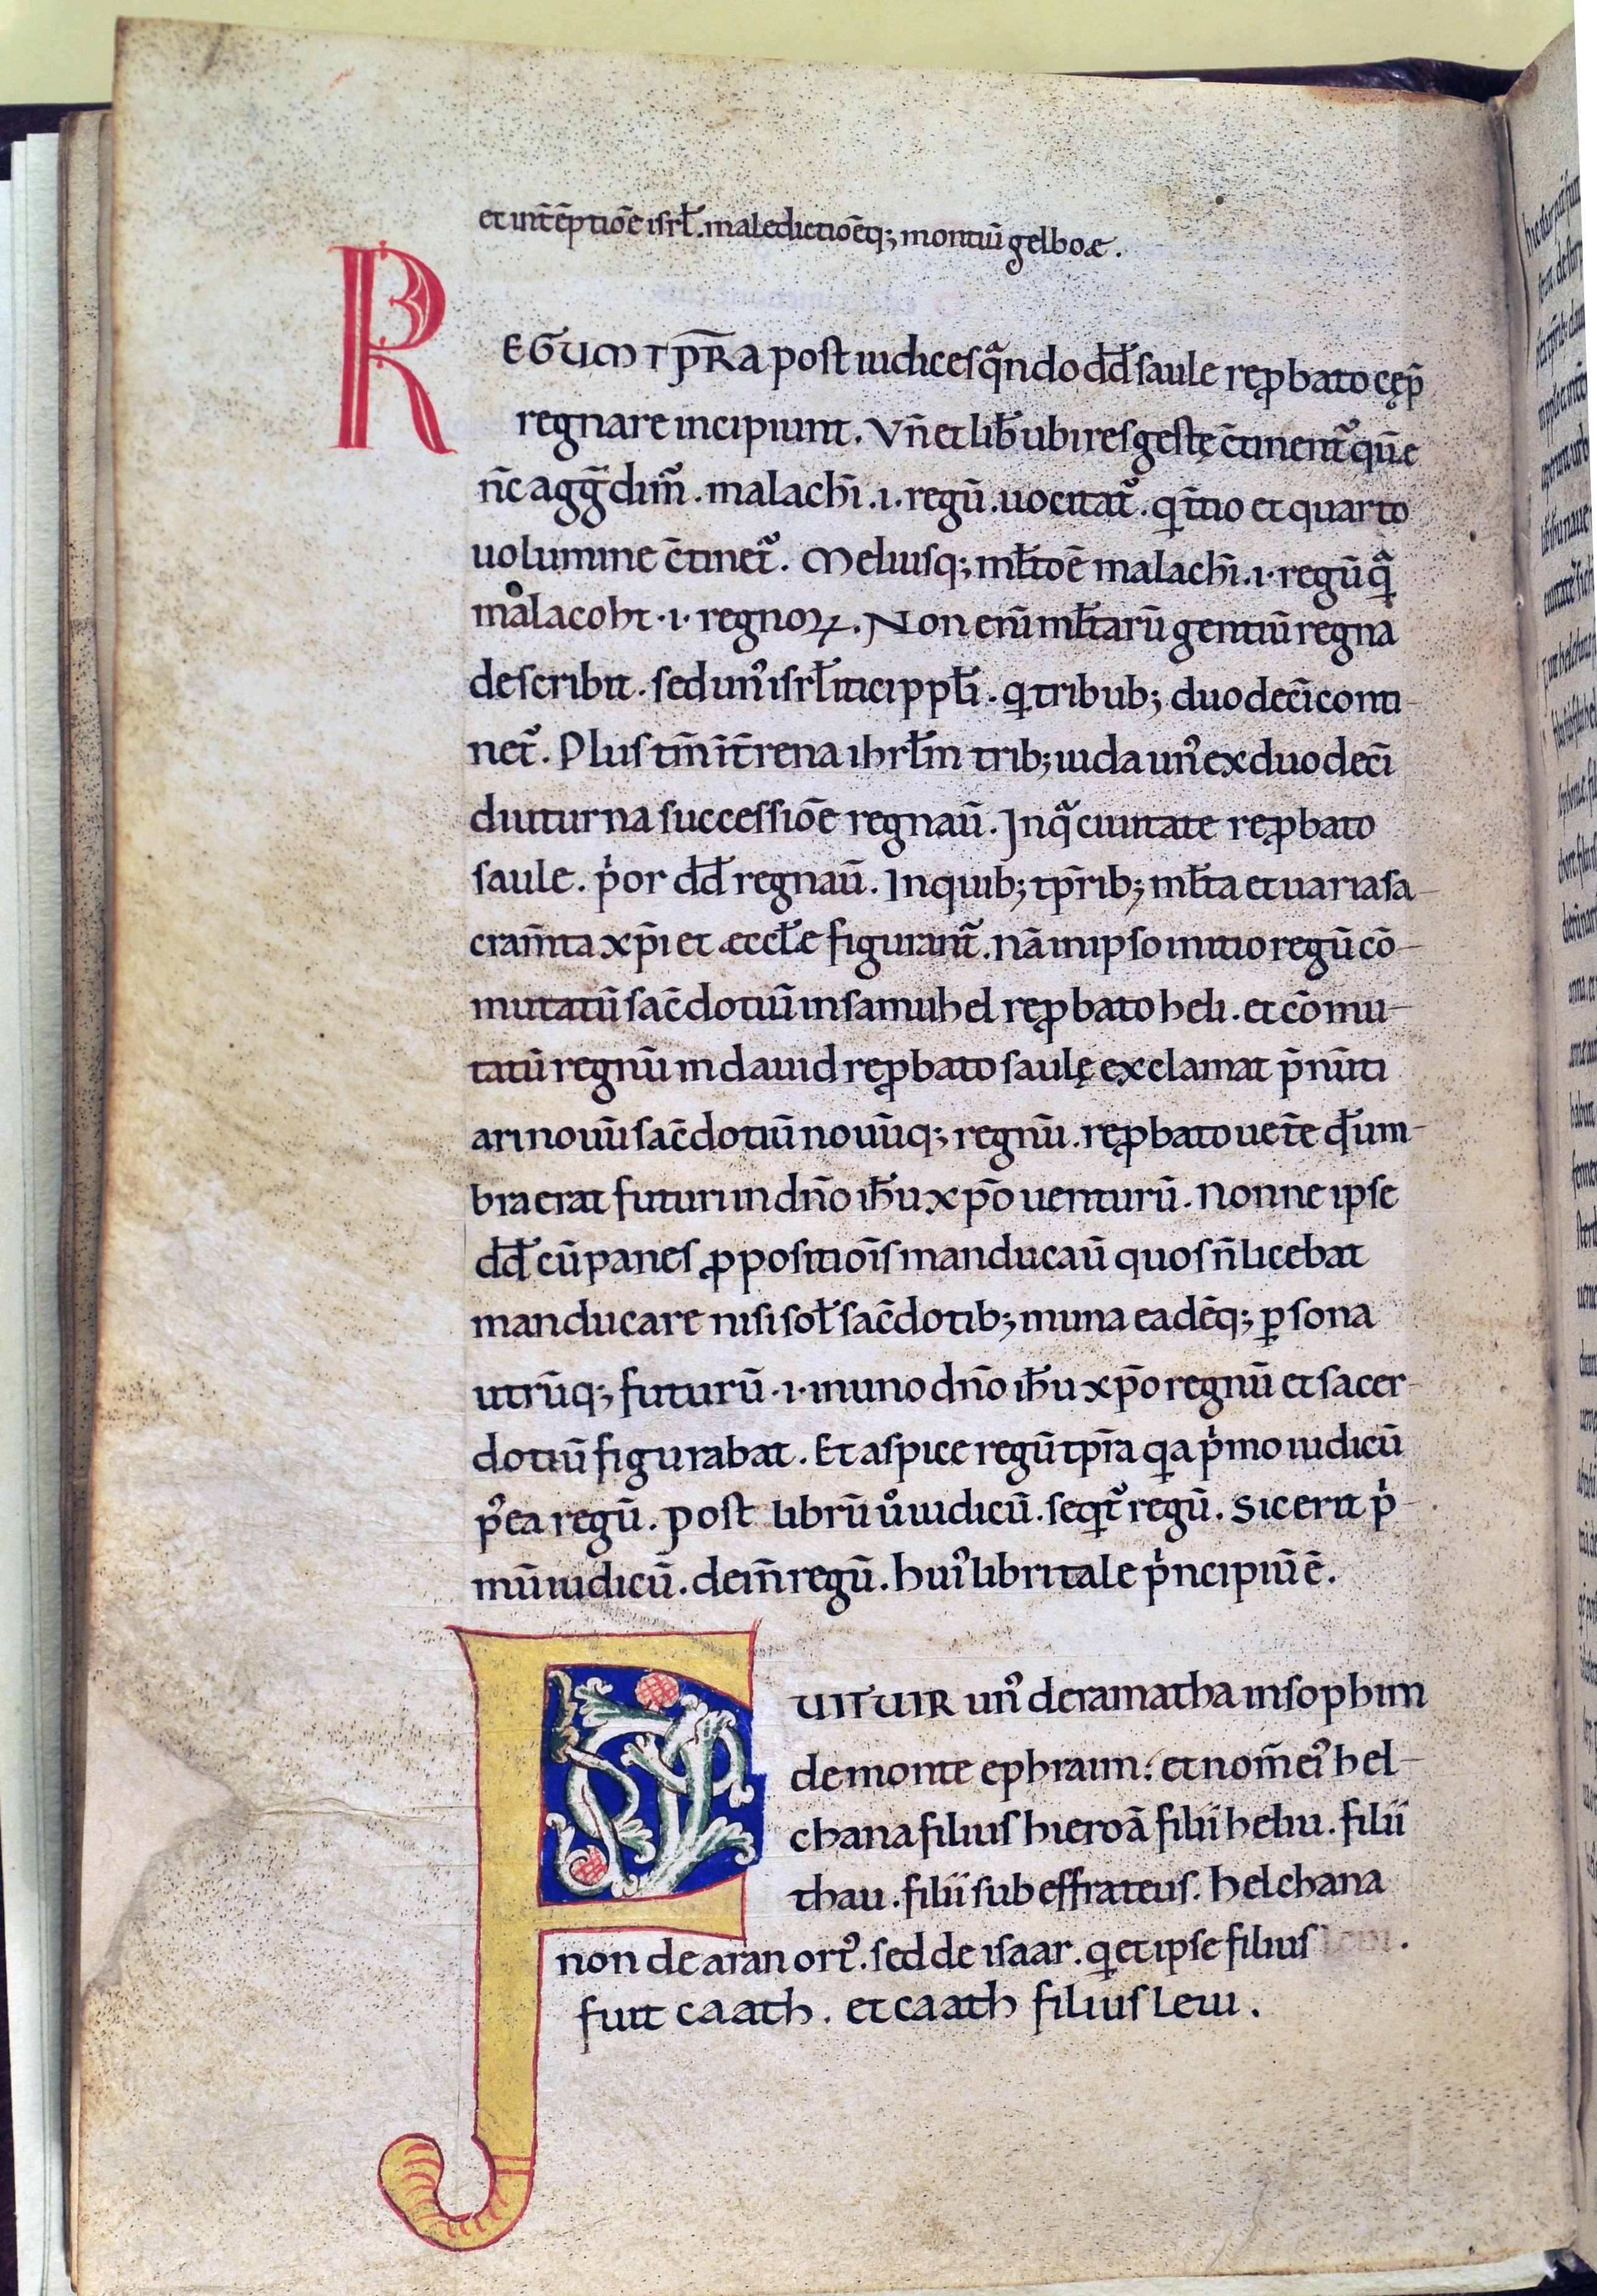 et int̄ēptiōe isrł. maledictiōeq; montiū gelboæ.
REGUM TP̄RA post iudices qͣndo dd̄ saule reꝓbato cęp̄
regnare incipiunt. Vn̄ et lib̄ ubi res gestę c̄tinent᷑ quē
n̄c agḡdim᷑. malachī .i. regū. uocitat᷑. qͥ t̄tio et quarto
uolumine c̄tinet᷑. Meliusq; młtoē malachī .i. regū qͣ̄
malacoht .i. regnoꝝ. Non enī młtarū gentiū regna
describit. sed unꝰ isrłitici ppłi. qͥ tribub; duodecī conti-
net᷑. Plus tm̄ īt̄rena ihrłm trib; iuda unꝰ ex duodecī
diuturna successiōe regnaū. Inqͣ ciuitate reꝓbato
saule. pͥor dd̄ regnaū. Inquib; tp̄rib; młta et uaria sa-
cram̄ta xp̄i et æccłe figurant᷑. nā in ipso initio regū cō-
mutatū sac̄dotiū in samuhel reꝓbato heli. et cōmu-
tatū regnū in dauid reꝓbato saulę exclamat p̄nūti
ari nouū sac̄dotiū nouūq; regnū. reꝓbato uet̄e qd̄ um-
bra erat futuri in dn̄o ih̄u xp̄o uenturū. Nonne ipse
dd̄ cū panes ꝓpositiōis manducaū quos n̄ licebat
manducare nisi soł sac̄dotib; in una eadēq; ꝑsona
utrūq; futurū .i. in uno dn̄o ih̄u xp̄o regnū et sacer-
dotiū figurabat. Et aspice regū tp̄ra qͥa pͥmo iudicū
pꝰea regū. Post librū uͦ iudicū. seqͥt᷑ regū. Sic erit pͥ-
mū iudicū. dein̄ regū. huiꝰ libri tale pͥncipiū ē.
FUIT UIR unꝰ de ramatha in sophim
de monte ephraim: et nom̄ eiꝰ hel-
chana filius hieroā filii heliu. filii
thau. filii sub effrateus. helchana
non de aran ortꝰ. sed de isaar. qͥ et ipse filius leui.
fuit caath. et caath filius leui.